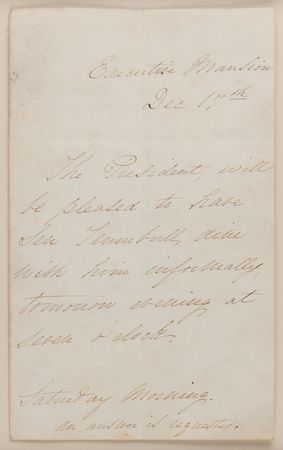 Executive Mansion
Dec 17th
The President, will
be pleased to have
Sen Trumbull, dine
with him informally,
tomorrow evening at
seven o clock.
Saturday Morning.
An answer is requested.